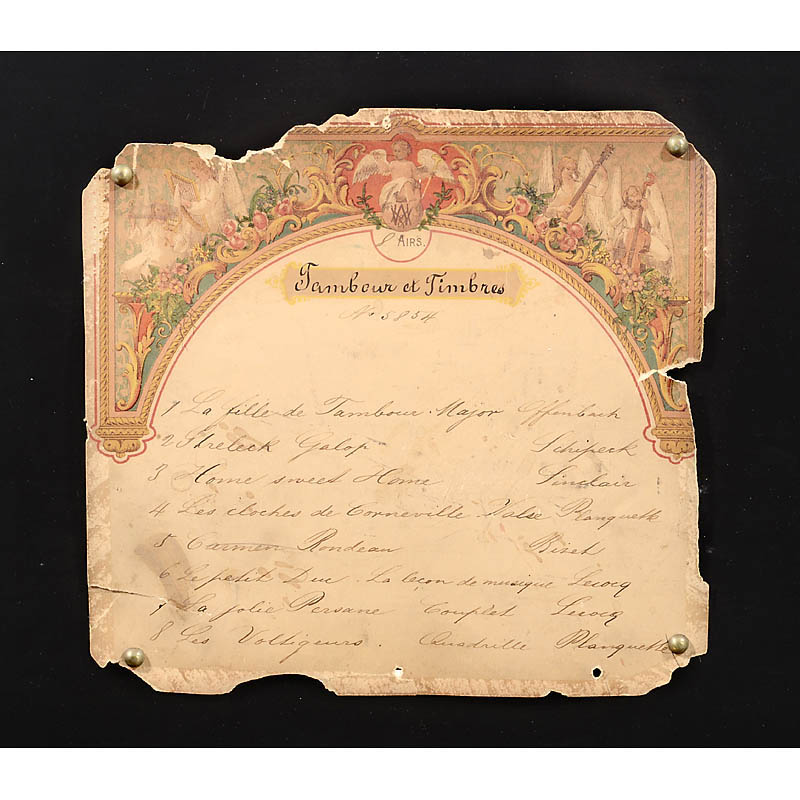 8 AIRS.
Tambour et Timbres
No 5854
1 La fille de Tambour-Major Offenbach
2 Streleck Galop Schipeck
3 Home sweet Home Sinclair
4 Les cloches de Corneville Valse Planquette
5 Carmen Rondeau Biset
6 Le petit Duc. La leçon de musique Lecocq
7 La jolie Persane Couplet Lecocq
8 Les Voltigeurs. Quadrille Planquette